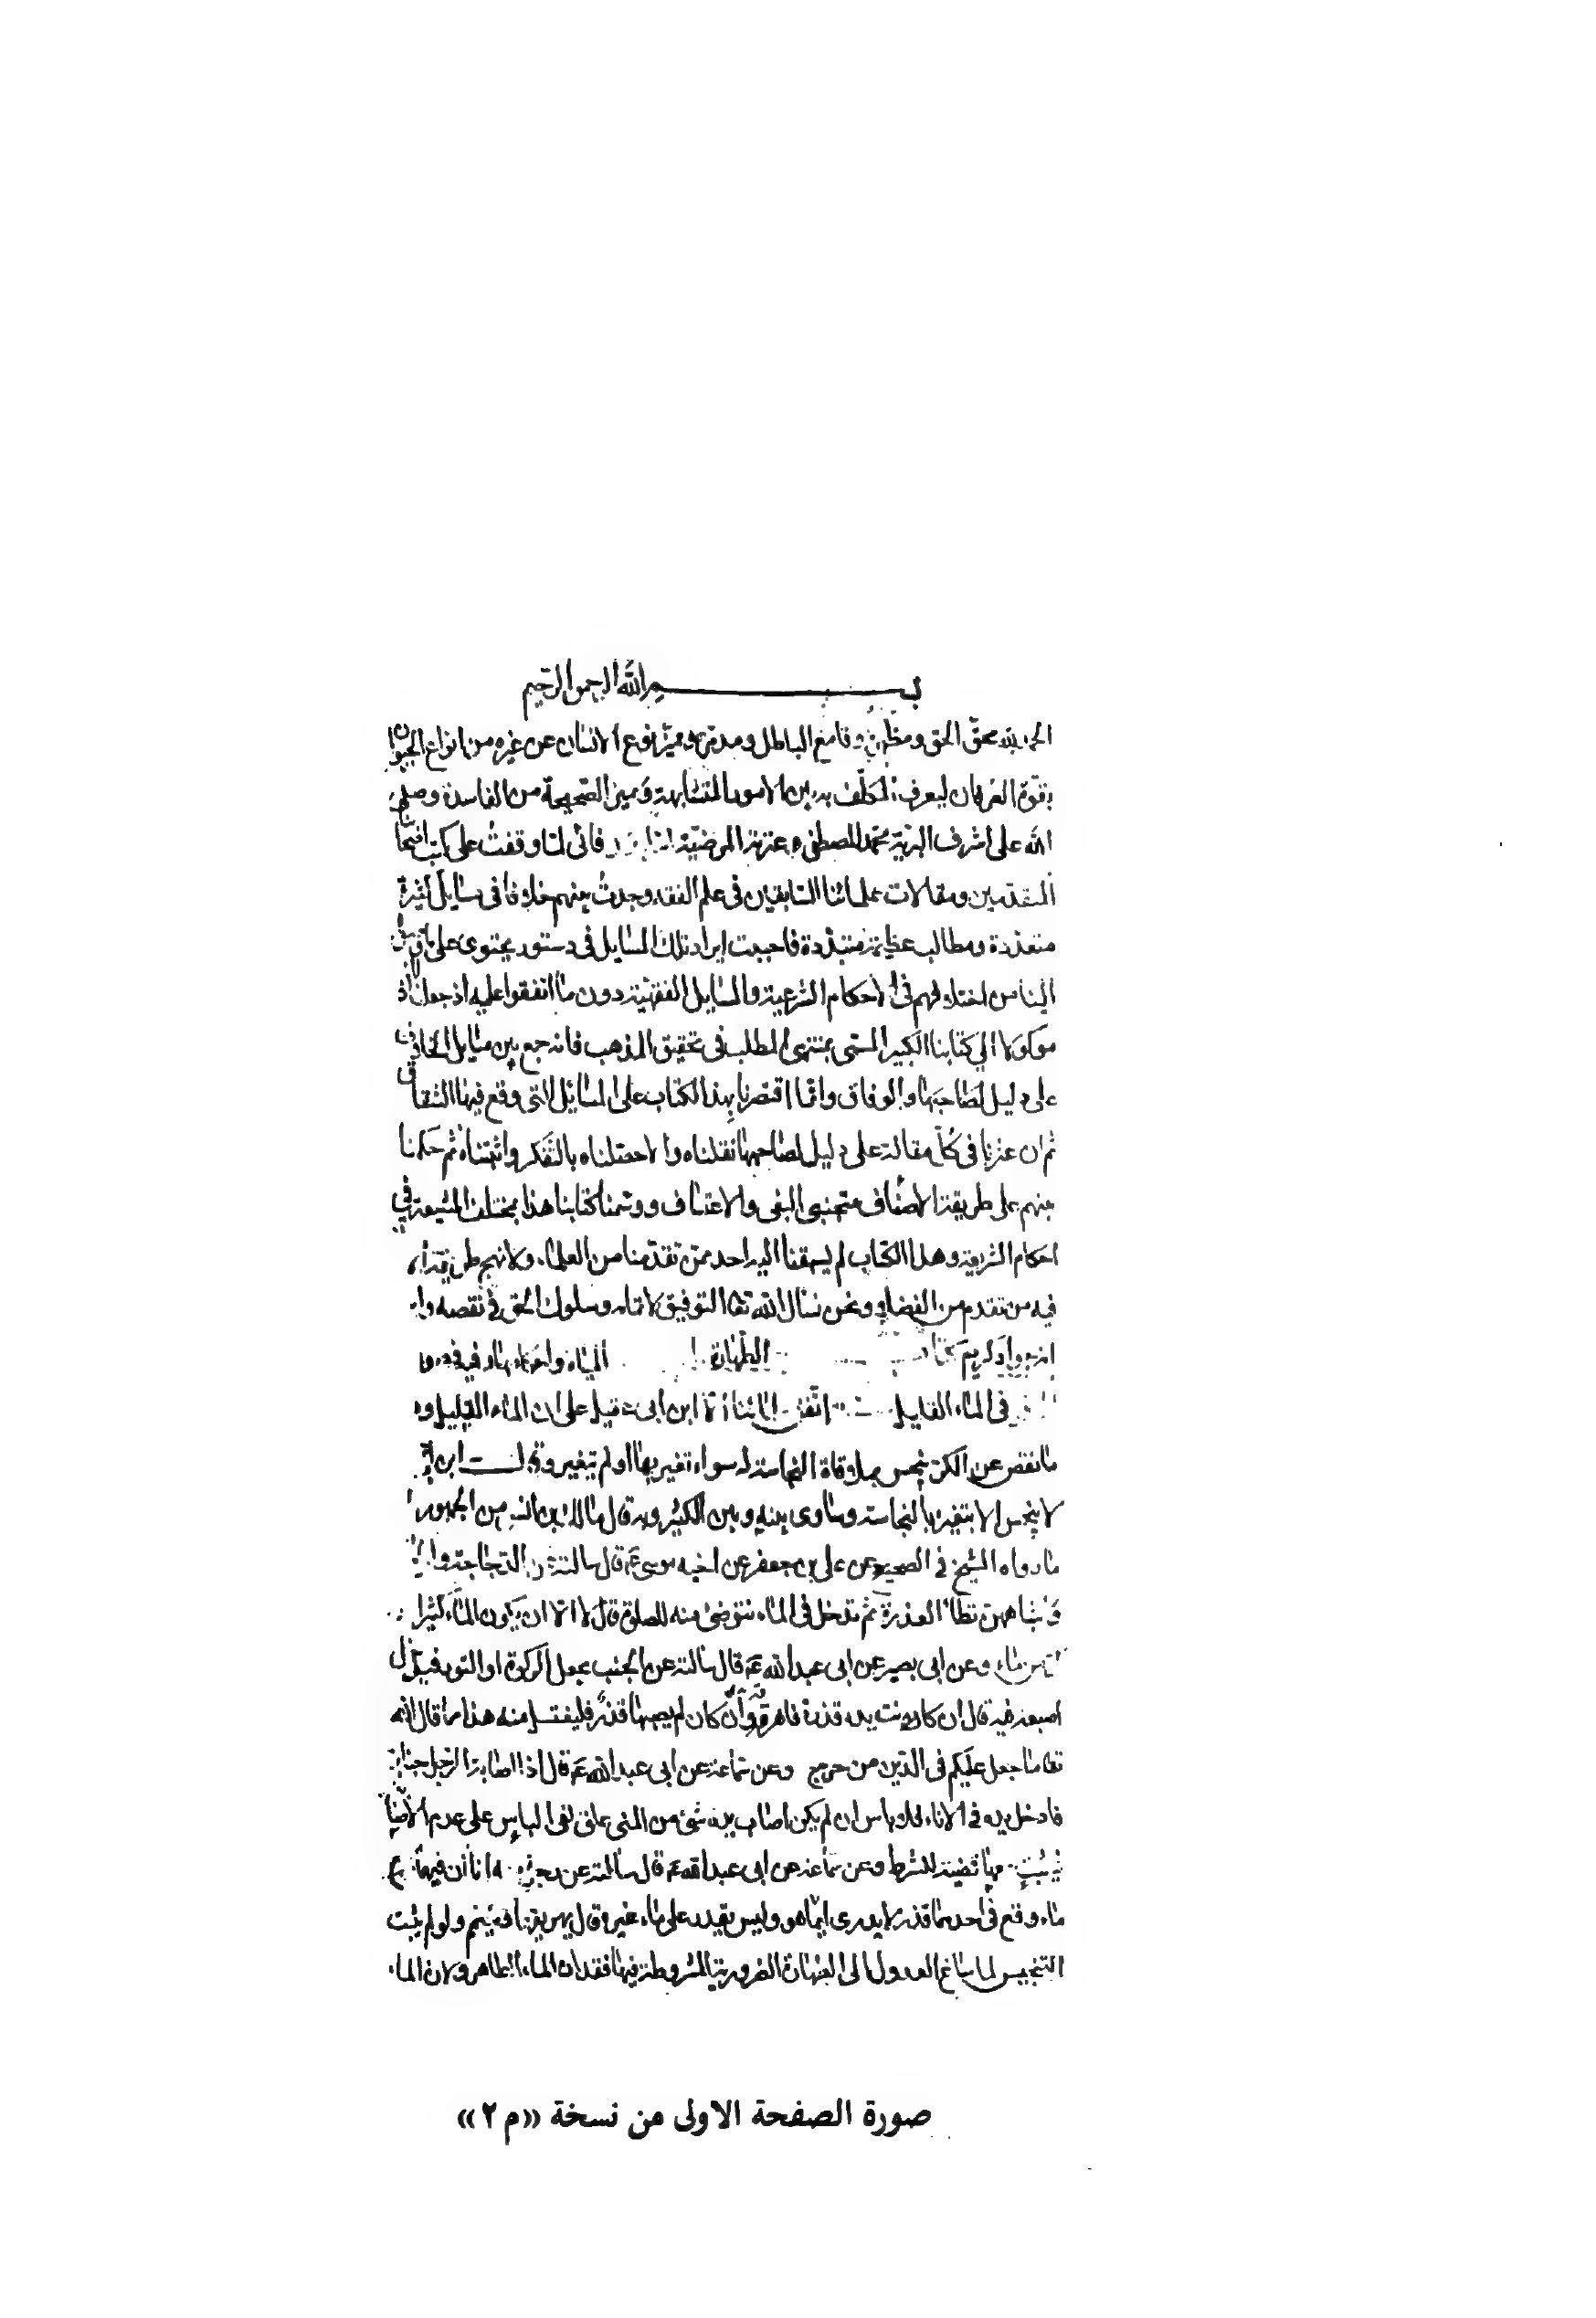 بسم الله الرحمن الرحيم
الحمد لله محق الحق ومظهره وقامع الباطل ومدمره ومميز نوع الانسان عن غيره من انواع الحيوان
بقوة العرفان ليعرف المكلف به بين الامور المتشابهة ويميز الصحيحة من الفاسدة وصلى
الله على اشرف البرية محمد المصطفى وعترته المرضية اما بعد فانى لما وقفت على كتب اصحابنا
المتقدمين ومقالات علمائنا السابقين فى علم الفقه وجدت بينهم خلافا فى مسايل كثيرة
متعددة ومطالب عظيمة متبددة فاحببت ايراد تلك المسايل فى دستور يحتوى على ما وصل
الينا من اختلافهم فى الاحكام الشرعية والمسايل الفقهية دون ما اتفقوا عليه اذ جعلنا
موكولا الى كتابنا الكبير المسمى بمنتهى المطلب فى تحقيق المذهب فانه جمع بين مسايل الخلاف
والوفاق وانما اقتصرنا بهذا الكتاب على المسائل التى وقع فيها الشقاق
ثم ان عثرنا فى كل مقالة على دليل لصاحبها نقلناه والا حصلناه بالتفكر واثبتناه ثم حكمنا
بينهم على طريقة الانصاف متجنبى البغى والاعتساف ووسمنا كتابنا هذا بمختلف الشيعة في
احكام الشريعة وهذا الكتاب لم يسبقنا اليه احد ممن تقدمنا من العلماء ولا نهج طريقه
فيه من تقدم من الفضلاء ونحن نسال الله تعا التوفيق لاتمامه وسلوك الحق في نقصه
انه جواد كريم كتاب الطهارة المياه واحكامها وفيه فصول
فى الماء القليل اتفق علمائنا الا ابن ابى عقيل على ان الماء القليل وهو
ما نقص عن الكر ينجس بملاقاة النجاسة له سواء تغير بها او لم يتغير وقال ابن ابى
لا ينجس الا بتغيره بالنجاسة وساوى بينه وبين الكثير وبه قال مالك بن انس من الجمهور
ما رواه الشيخ في الصحيح عن على بن جعفر عن اخيه موسى ع قال سالته عن الدجاجة
واشباههن تطأ العذرة ثم تدخل فى الماء نتوضئ منه للصلوة قال لا الا ان يكون الماء كثيرا
من ماء وعن ابى بصير عن ابى عبد الله ع قال سالته عن الجنب يجعل الركوة او التور فيدخل
اصبعه فيه قال ان كانت يده قذرة فاهرقه وان كان لم يصبها قذر فليغتسل منه هذا مما قال الله
تعا ما جعل عليكم فى الدين من حرج وعن سماعة عن ابى عبد الله ع قال اذا اصابت الرجل جنابة
فادخل يده فى الاناء فلا باس ان لم يكن اصاب يده شئ من المنى علق نفى الباس على عدم الاصابة
قضية للشرط وعن سماعة عن ابى عبد الله ع قال سالته عن رجل معه اناآن فيهما
ماء وقع فى احدهما قذر لا يدرى ايهما هو وليس يقدر على ماء غيره قال يهريقهما ويتيمم ولو لم يثبت
التنجيس لما ساغ العدول الى الطهارة الضرورية المشروطة فيها فقدان الماء الطاهر ولان الماء
صورة الصفحة الاولى من نسخة «م ٢»